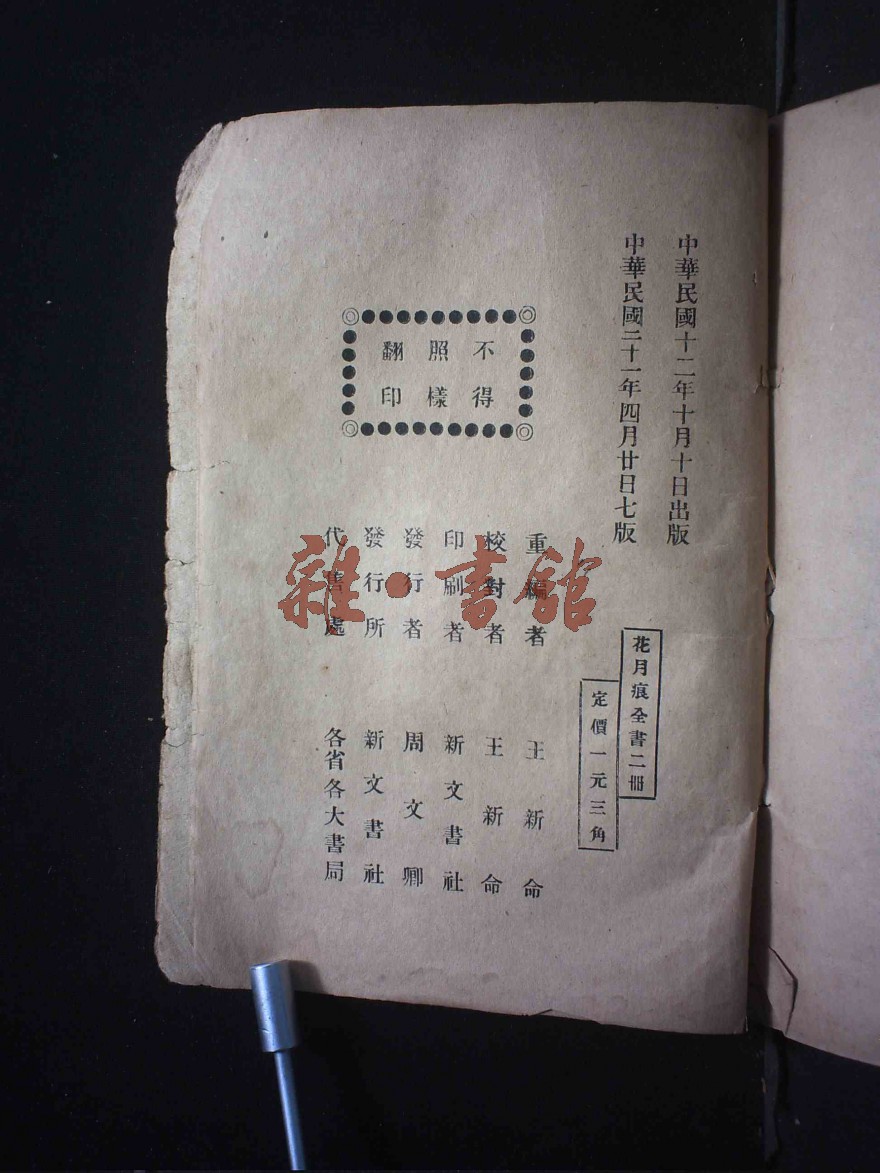 中華民國十二年十月十日出版
中華民國二十一年四月廿日七版
花月痕全書二冊
定價一元三角
不得
照樣
翻印
重編者 王新命
校對者 王新命
印刷者 新文書社
發行者 周文卿
發行所 新文書社
代售處 各省各大書局
雜·書館